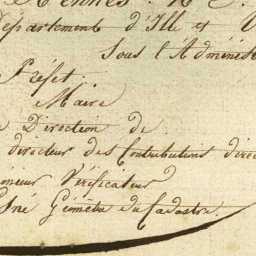 Département d'Ille et V
Sous l'Administ
Préfet.
Maire
Direction de
directeur des Contributions direc
Vérificateur
Géomètre du Cadastre.